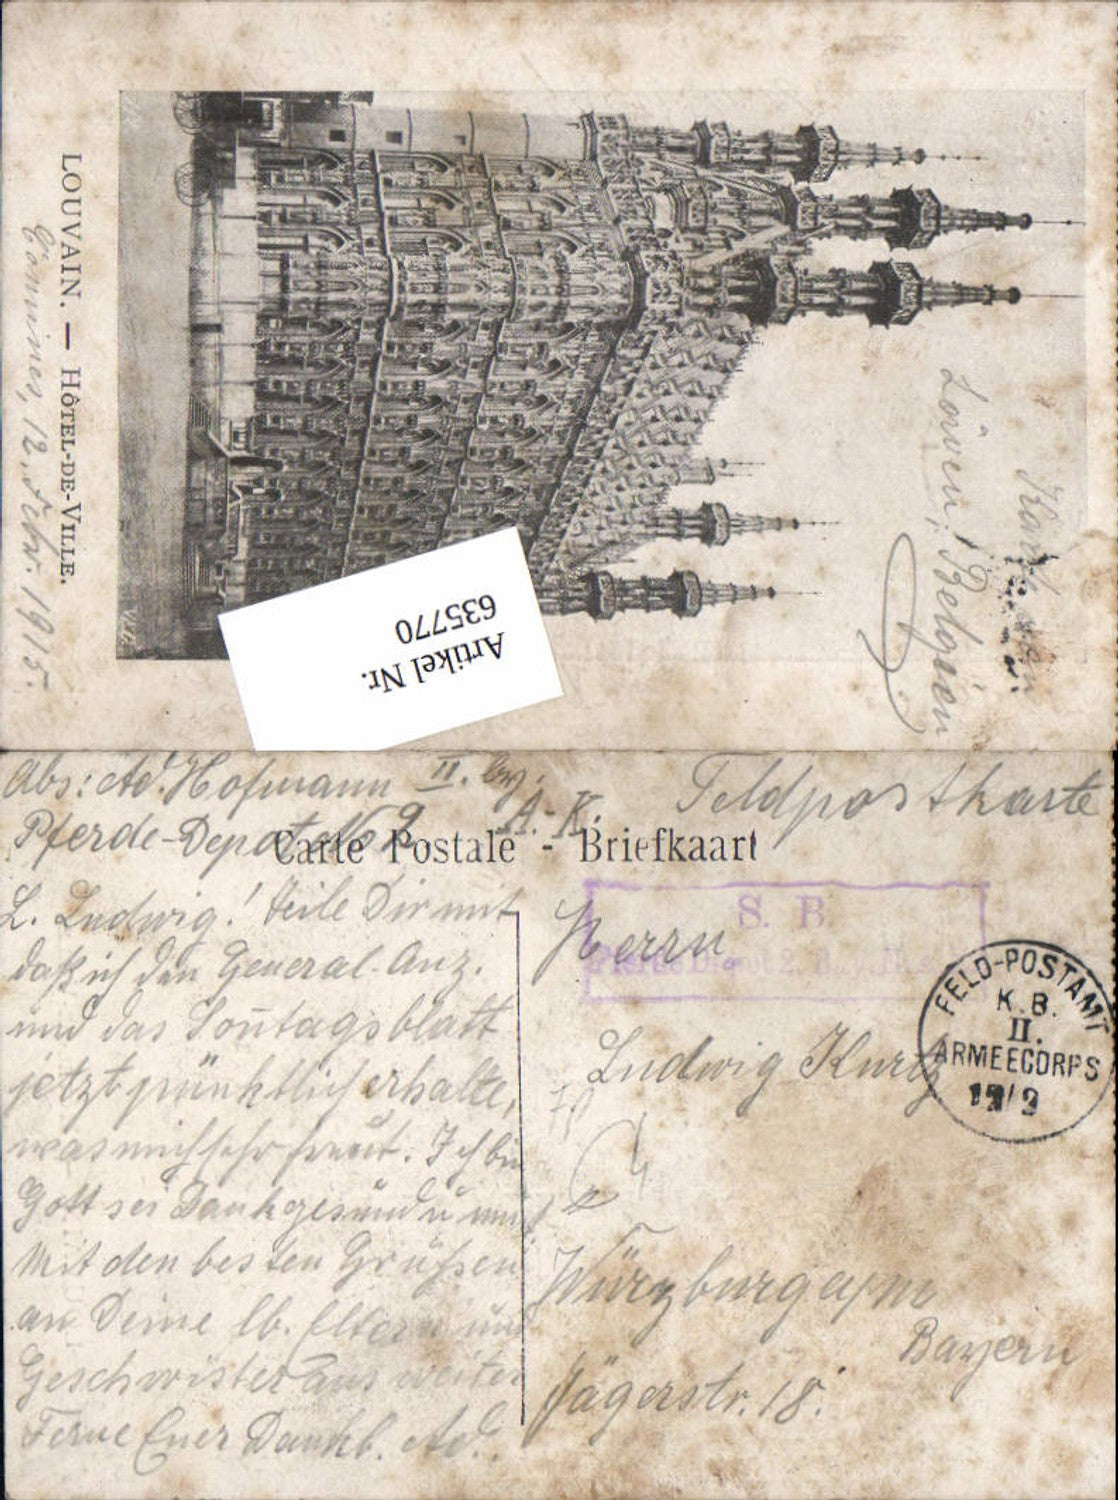 LOUVAIN. — HÔTEL-DE-VILLE.
Comines, 12. Febr. 1915.
Löwen, Belgien
Artikel Nr.
635770
Abs: Ad. Hofmann II. bay. A.-K.
Pferde-Depot No 2
Feldpostkarte
Carte Postale - Briefkaart
L. Ludwig! Teile Dir mit
daß ich den General-Anz.
und das Sonntagsblatt
jetzt pünktlich erhalte,
was mich sehr freut. Ich bin
Gott sei Dank gesund u
Mit den besten Grüßen
an Deine lb. Eltern und
Geschwister aus weiter
Ferne Euer Dankb. Ad.
S. B.
Pferde Depot 2. Bay.
FELD-POSTAMT
K. B.
II.
ARMEECORPS
Herrn
Ludwig Kurtz
Würzburg a/m
Bayern
Jägerstr. 18.